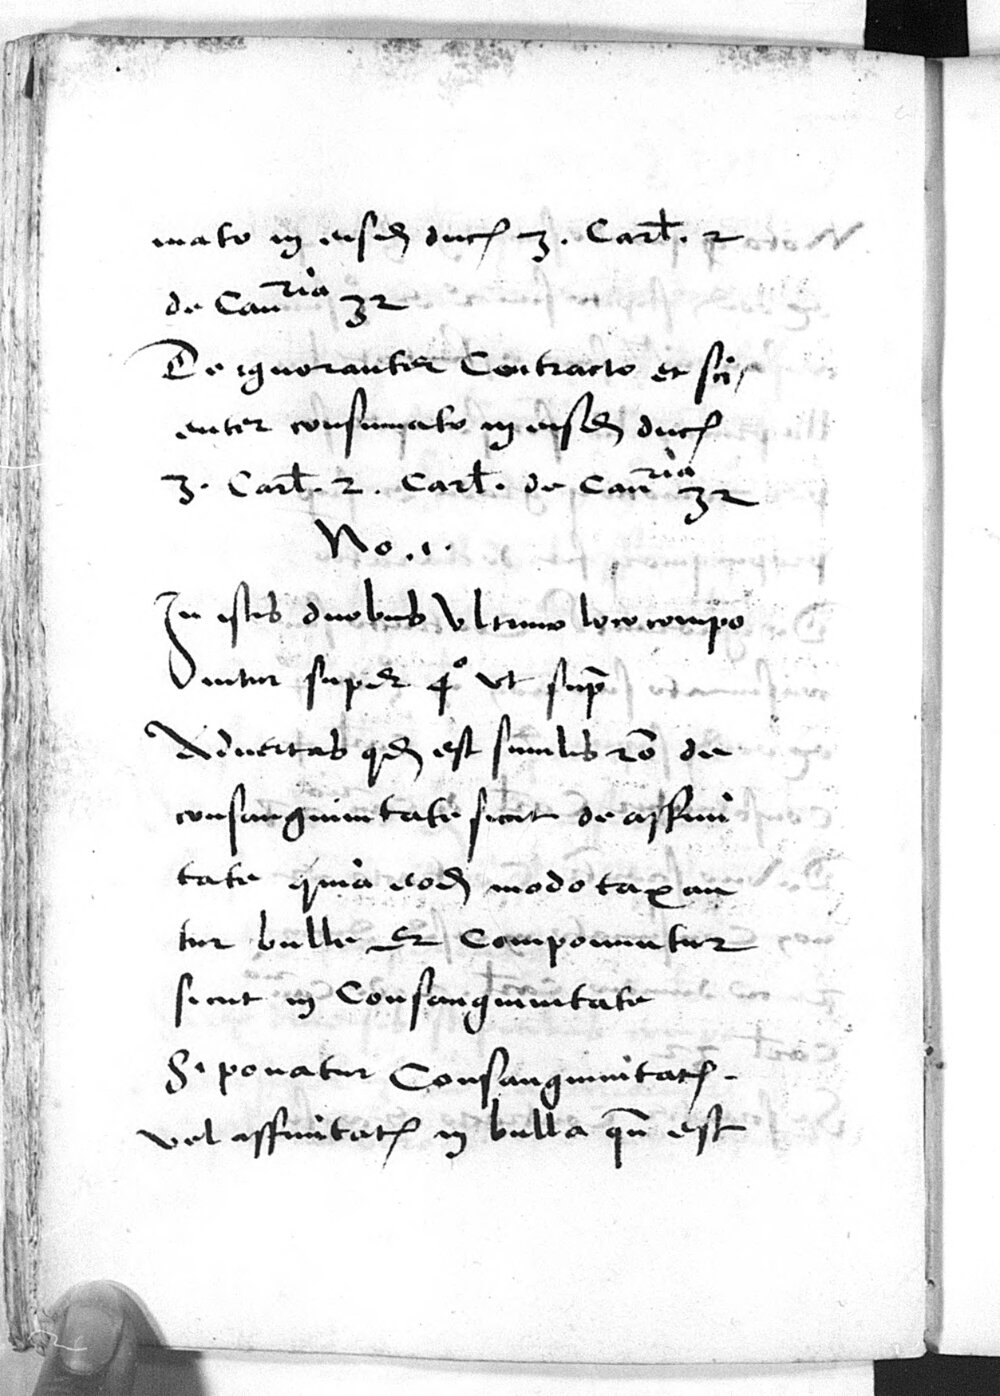 mato in eisdẽ duc̃ 3. Carl̃. 2
de Canria 32
De ignoranter Contracto et sci/
enter consumato in eisdẽ duc̃
3. Carl̃. 2. Carl̃. de Canria 32
No. 1.
In istis duobus Ultimo loco compo
nuntur super 4º ut sup̃
Advertas qđ est similis rõ de
consanguinitate sicut de affini
tate quia eodẽ modo taxan
tur bulle Et Componuntur
sicut in Consanguinitate
Si ponatur Consanguinitat̃
vel affinitat̃ in bulla qñ est